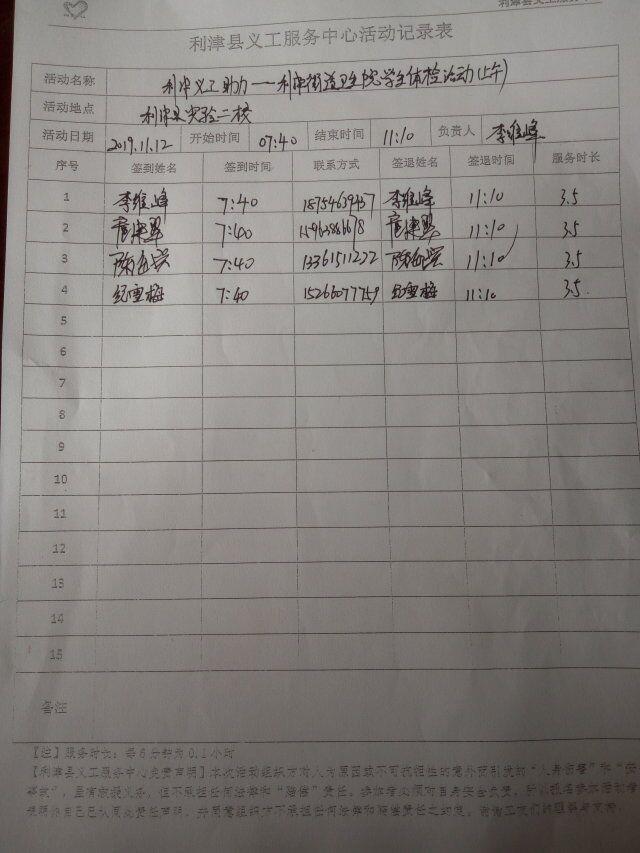 利津县义工服务中心活动记录表
活动名称 利津义工助力——利津街道卫生院学生体检活动(上午)
活动地点 利津县实验一校
活动日期 2019.11.12 开始时间 07:40 结束时间 11:10 负责人 李维峰
序号 签到姓名 签到时间 联系方式 签退姓名 签退时间 服务时长
1 李维峰 7:40 李维峰 11:10 3.5
2 7:40 11:10 3.5
3 7:40 13361511222 11:10 3.5
4 纪雪梅 7:40 15266077759 纪雪梅 11:10 3.5
5
6
7
8
9
10
11
12
13
14
15
备注
【注】服务时长：每6分钟为0.1小时
【利津县义工服务中心免责声明】本次活动组织方对人为原因或不可抗拒性的意外而引发的“人身伤害”和“安
等，且有救援义务，但不承担任何法律和“赔偿”责任。参加者必须对自身安全负责，所以报名参加活动者
自己已认同此责任声明，并同意组织方不承担任何法律和赔偿责任之约定。谢谢工友们的理解与支持。